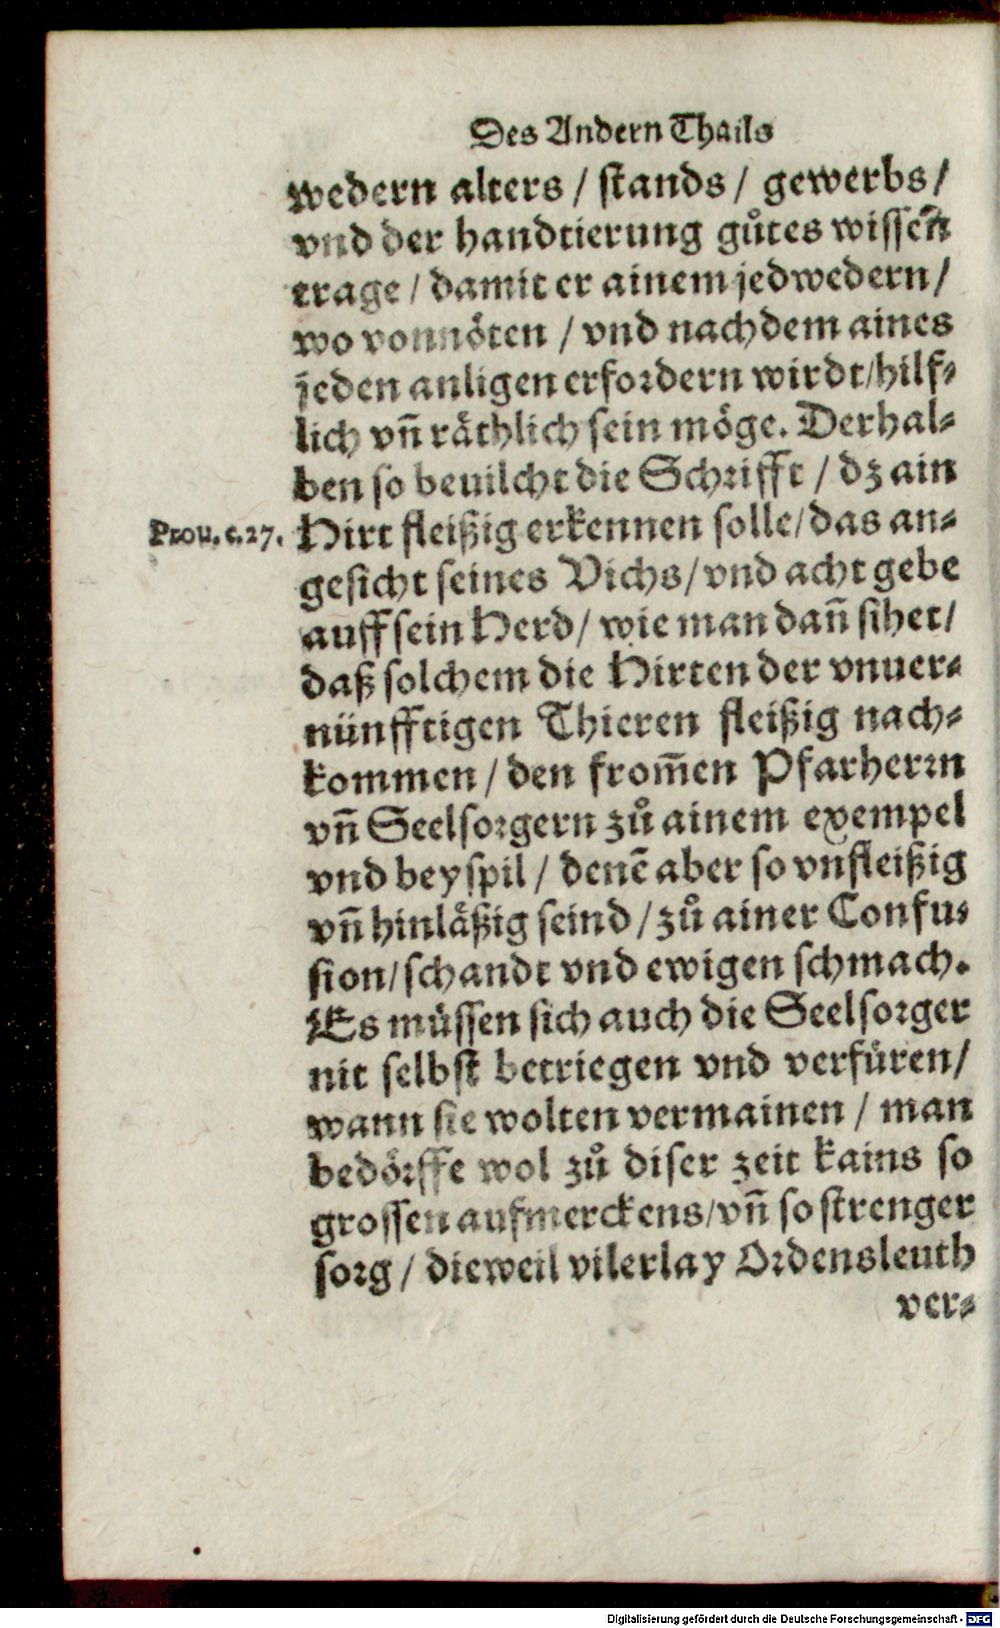 Des Andern Thails
wedern alters / stands / gewerbs /
vnd der handtierung gůtes wissen
trage / damit er ainem jedwedern /
wo vonnöten / vnd nachdem aines
jeden anligen erfordern wirdt / hilf⸗
lich vñ räthlich sein möge. Derhal⸗
ben so beuilcht die Schrifft / dz ain
Prou. c. 27. Hirt fleißig erkennen solle / das an⸗
gesicht seines Vichs / vnd acht gebe
auff sein Herd / wie man dañ sihet /
daß solchem die Hirten der vnuer⸗
nünfftigen Thieren fleißig nach⸗
kommen / den from̃en Pfarherrn
vñ Seelsorgern zů ainem exempel
vnd beyspil / denē aber so vnfleißig
vñ hinläßig seind / zů ainer Confu⸗
sion / schandt vnd ewigen schmach.
Es müssen sich auch die Seelsorger
nit selbst betriegen vnd verfüren /
wann sie wolten vermainen / man
bedörffe wol zů diser zeit kains so
grossen aufmerckens / vñ so strenger
sorg / dieweil vilerlay Ordensleuth
ver⸗
Digitalisierung gefördert durch die Deutsche Forschungsgemeinschaft - DFG